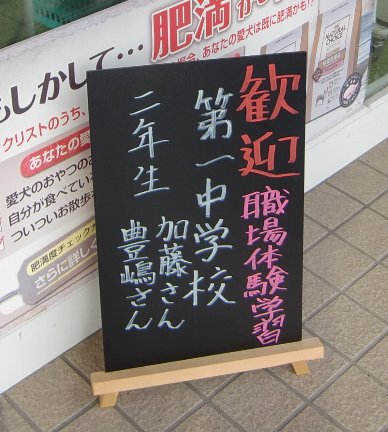 歓迎 職場体験学習
第一中学校
二年生 加藤さん
豊嶋さん
肥満
もしかして…
場合、あなたの愛犬は既に肥満かも!?
クリストのうち、
あなたの愛
愛犬のおやつのお
自分が食べている
ついついお散歩
肥満度チェック
さらに詳しく